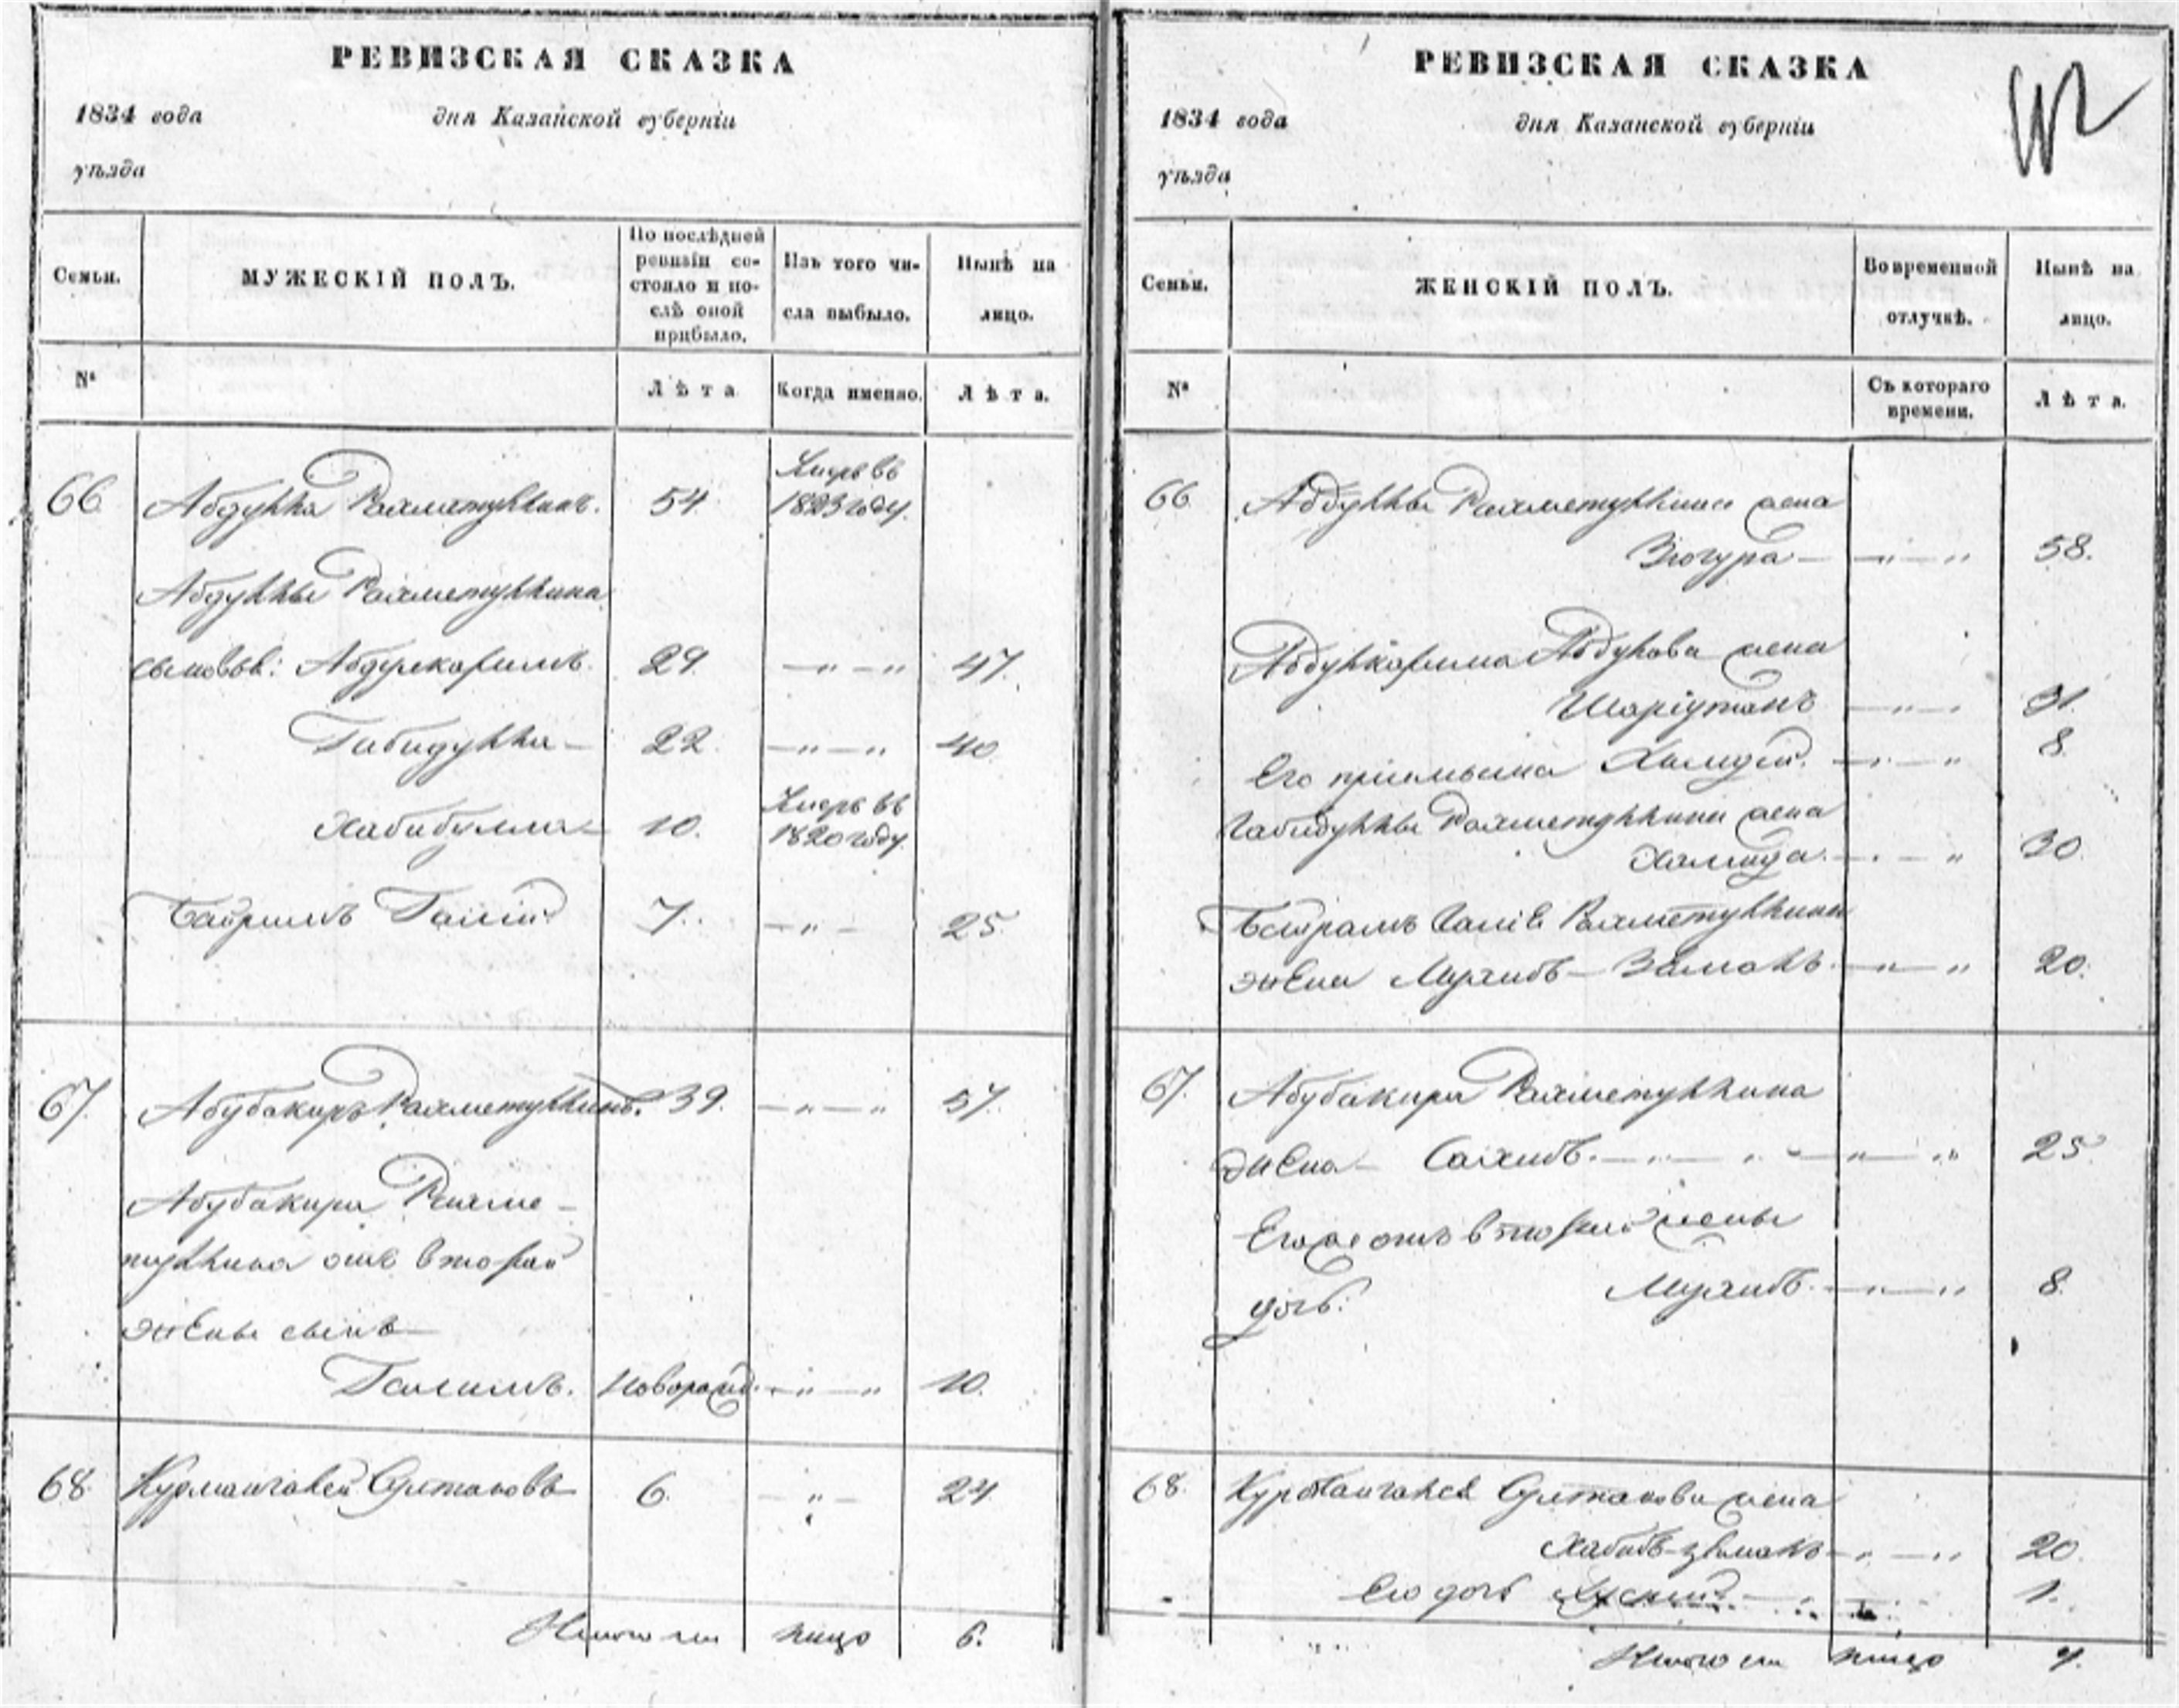 РЕВИЗСКАЯ СКАЗКА
1834 года дня Казанской губерніи
уѣзда
Семьи.
МУЖЕСКІЙ ПОЛЪ.
По послѣдней
ревизіи со-
стояло и по-
слѣ оной
прибыло.
Изъ того чи-
сла выбыло.
Нынѣ на
лицо.
№
Лѣта
Когда именно.
Лѣта.
66 Абдулла Рахметуллинъ. 54 Умеръ въ
1823 году.
Абдуллы Рахметуллина
сыновья: Абдулкаримъ. 29. —„—„ 47.
Габидулла — 22. —„—„ 40
Хабибулла — 10. Умеръ въ
1820 году.
Байрамъ Галій 7. —„— 25
67. Абубакиръ Рахметуллинъ. 39. —„—„ 57.
Абубакира Рахме-
туллина отъ второй
жены сынъ
Галимъ. новорожд. —„—„ 10.
68 Курмангалей Султановъ 6. —„— 24.
Итого на лицо 6.
РЕВИЗСКАЯ СКАЗКА
1834 года дня Казанской губерніи
уѣзда
Семьи.
ЖЕНСКІЙ ПОЛЪ.
Во временной
отлучкѣ.
Нынѣ на
лицо.
№
Съ котораго
времени.
Лѣта.
66 Абдуллы Рахметуллина жена
Зюгура — —„—„ 58.
Абдулкарима Абдулова жена
—„— 31.
Его пріемыша —„—„ 8
Габидуллы Рахметуллина жена
Халида. —„—„ 30.
Байрамъ Галіе Рахметуллина
жена Мухибъ-Замалъ. —„—„ 20.
67. Абубакира Рахметуллина
жена — Сахибъ. —„—„ 25
Его же отъ второй жены
дочь: Мухибъ. —„—„ 8.
68. Курбангалея Султанова жена
Хабибъ-зямалъ —„—„ 20.
Его дочь 1.
Итого на лицо